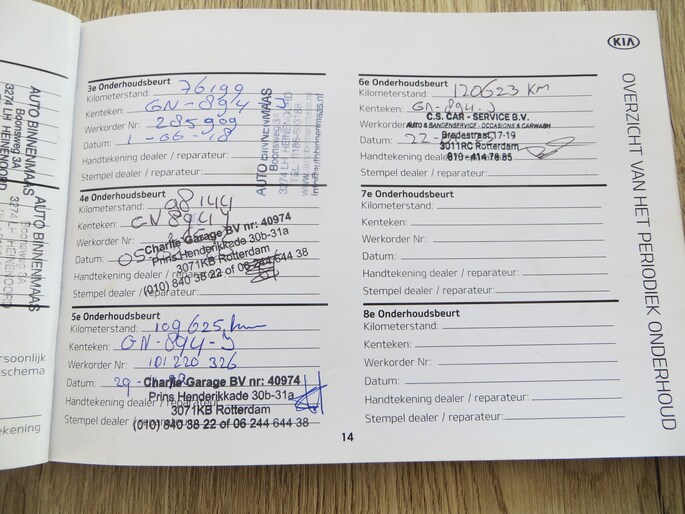 KIA
OVERZICHT VAN HET PERIODIEK ONDERHOUD
3e Onderhoudsbeurt
Kilometerstand: 76199
Kenteken: GN-894
Werkorder Nr: 285909
Datum: 1-06-18
Handtekening dealer / reparateur:
Stempel dealer / reparateur:
AUTO BINNENMAAS
Boonsweg 3A
3274 LH HEINENOORD
4e Onderhoudsbeurt
Kilometerstand: 98144
Kenteken: GN 894
Werkorder Nr:
Datum: 05
Handtekening dealer / reparateur:
Stempel dealer / reparateur:
Charlie Garage BV nr: 40974
Prins Henderikkade 30b-31a
3071KB Rotterdam
(010) 840 38 22 of 06 244 644 38
5e Onderhoudsbeurt
Kilometerstand: 109625 km
Kenteken: GN-894-J
Werkorder Nr: 101220326
Datum: 29
Handtekening dealer / reparateur:
Stempel dealer / reparateur:
Charlie Garage BV nr: 40974
Prins Henderikkade 30b-31a
3071KB Rotterdam
(010) 840 38 22 of 06 244 644 38
6e Onderhoudsbeurt
Kilometerstand: 120623 KM
Kenteken: GN-894-J
Werkorder
Datum: 22-
Handtekening dealer
Stempel dealer / reparateur:
C.S. CAR - SERVICE B.V.
AUTO & BANDENSERVICE - OCCASIONS & CARWASH
Bredestraat 17-19
3011RC Rotterdam
010 - 414 78 85
7e Onderhoudsbeurt
Kilometerstand:
Kenteken:
Werkorder Nr:
Datum:
Handtekening dealer / reparateur:
Stempel dealer / reparateur:
8e Onderhoudsbeurt
Kilometerstand:
Kenteken:
Werkorder Nr:
Datum:
Handtekening dealer / reparateur:
Stempel dealer / reparateur:
14
AUTO BINNENMAAS
Boonsweg 3A
3274 LH HEINENOORD
AUTO BINNENMAAS
Boonsweg 3A
3274 LH HEINENOORD
ersoonlijk
schema
ekening